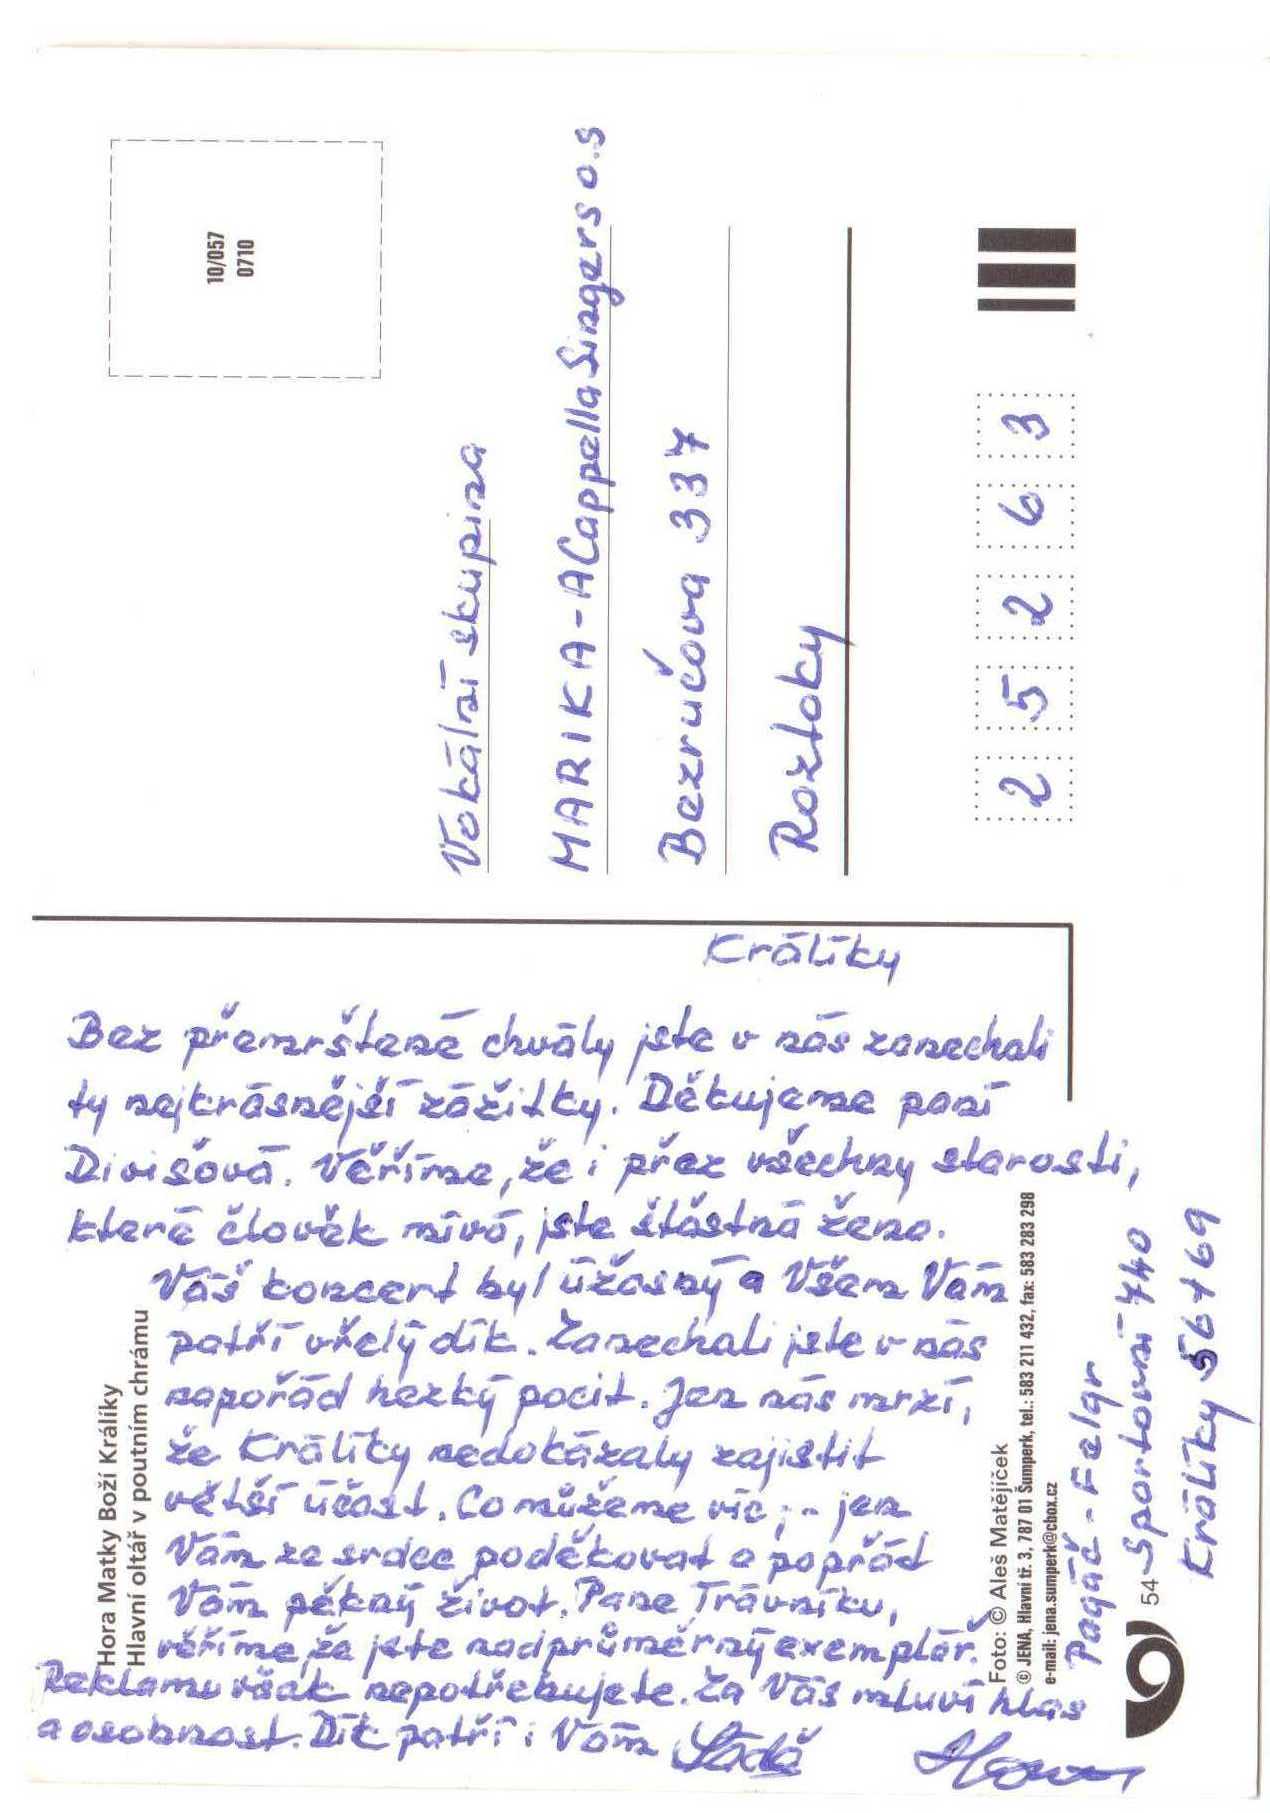 Králíky
Bez přemrštené chvály jste v nás zanechali
ty nejkrásnější zážitky. Děkujeme paní
Divišová. Věříme, že i přez všechny starosti,
které člověk mívá, jste šťastná žena.
Váš koncert byl úžasný a Všem Vám
patří vřelý dík. Zanechali jste v nás
napořád hezký pocit. Jen nás mrzí,
že Králíky nedokázaly zajistit
větší účast. Co můžeme víc, - jen
Vám ze srdce poděkovat a popřád
Vám pěkný život. Pane Trávníku,
věříme, že jste nadprůměrný exemplář.
Reklamu však nepotřebujete. Za Vás mluví hlas
a osobnost. Dík patří i Vám
Pagáč - Felgr
Sportovní 740
Králíky 56169
Hora Matky Boží Králíky
Hlavní oltář v poutním chrámu
Foto: © Aleš Matějíček
© JENA, Hlavní tř. 3, 787 01 Šumperk, tel.: 583 211 432, fax: 583 283 298
e-mail: jena.sumperk@cbox.cz
54
10/057
0710
Vokální skupina
MARIKA - A Cappella Singers o.s
Bezručova 337
Roztoky
2 5 2 6 3